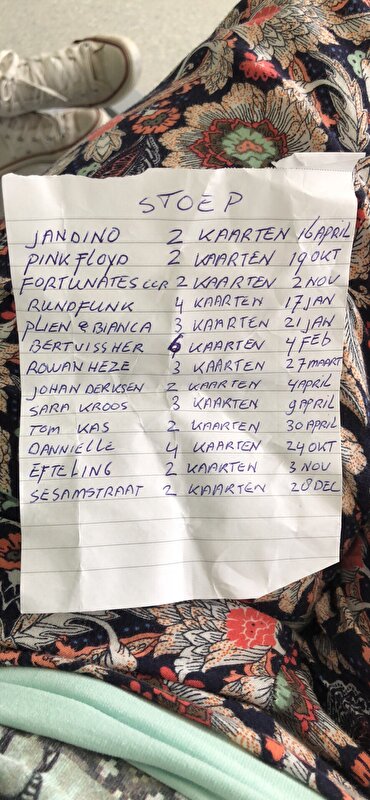 STOEP
JANDINO 2 KAARTEN 16 APRIL
PINK FLOYD 2 KAARTEN 19 OKT
FORTUNATES CCR 2 KAARTEN 2 NOV
RUNDFUNK 4 KAARTEN 17 JAN
PLIEN & BIANCA 3 KAARTEN 21 JAN
BERT VISSHER 6 KAARTEN 4 FEB
ROWAN HEZE 3 KAARTEN 27 MAART
JOHAN DERKSEN 2 KAARTEN 4 APRIL
SARA KROOS 3 KAARTEN 9 APRIL
TOM KAS 2 KAARTEN 30 APRIL
DANNIELLE 4 KAARTEN 24 OKT
EFTELING 2 KAARTEN 3 NOV
SESAMSTRAAT 2 KAARTEN 28 DEC